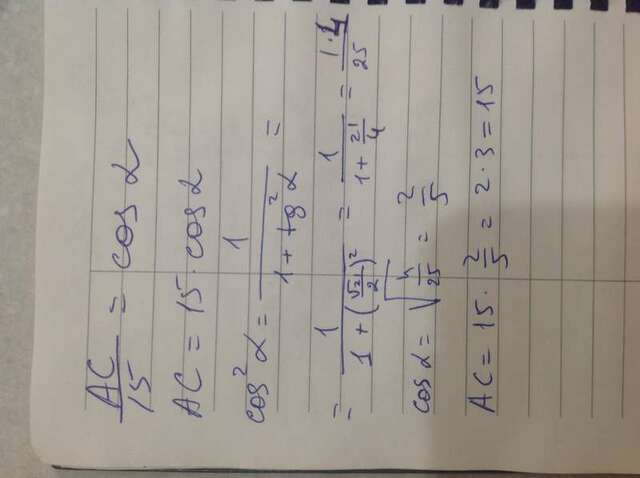 AC/15 = cos α
AC = 15 · cos α
cos² α = 1/(1 + tg² α) =
= 1/(1 + (√21/2)²) = 1/(1 + 21/4) = 1·4/25
cos α = √(4/25) = 2/5
AC = 15 · 2/5 = 2 · 3 = 15